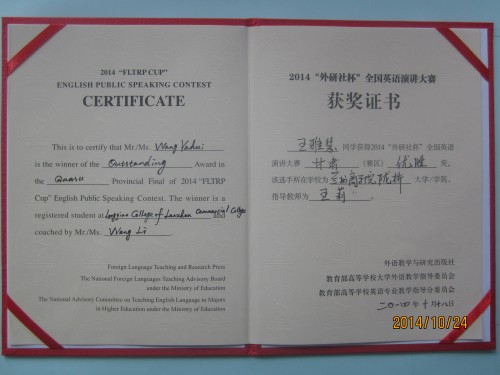 2014 "FLTRP CUP"
ENGLISH PUBLIC SPEAKING CONTEST
CERTIFICATE
This is to certify that Mr./Ms. Wang Yahui
is the winner of the Outstanding Award in
the Gansu Provincial Final of 2014 "FLTRP
Cup" English Public Speaking Contest. The winner is a
registered student at Longqiao College of Lanzhou Commercial College and
coached by Mr./Ms. Wang Li
Foreign Language Teaching and Research Press
The National Foreign Languages Teaching Advisory Board
under the Ministry of Education
The National Advisory Committee on Teaching English Language to Majors
in Higher Education under the Ministry of Education
2014 "外研社杯" 全国英语演讲大赛
获奖证书
王雅慧 同学获得2014 "外研社杯" 全国英语
演讲大赛 甘肃 (赛区) 优胜 奖。
该选手所在学校为 兰州商学院陇桥 大学/学院,
指导教师为 王莉 。
外语教学与研究出版社
教育部高等学校大学外语教学指导委员会
教育部高等学校英语专业教学指导分委员会
二〇一四年十月十八日
2014/10/24